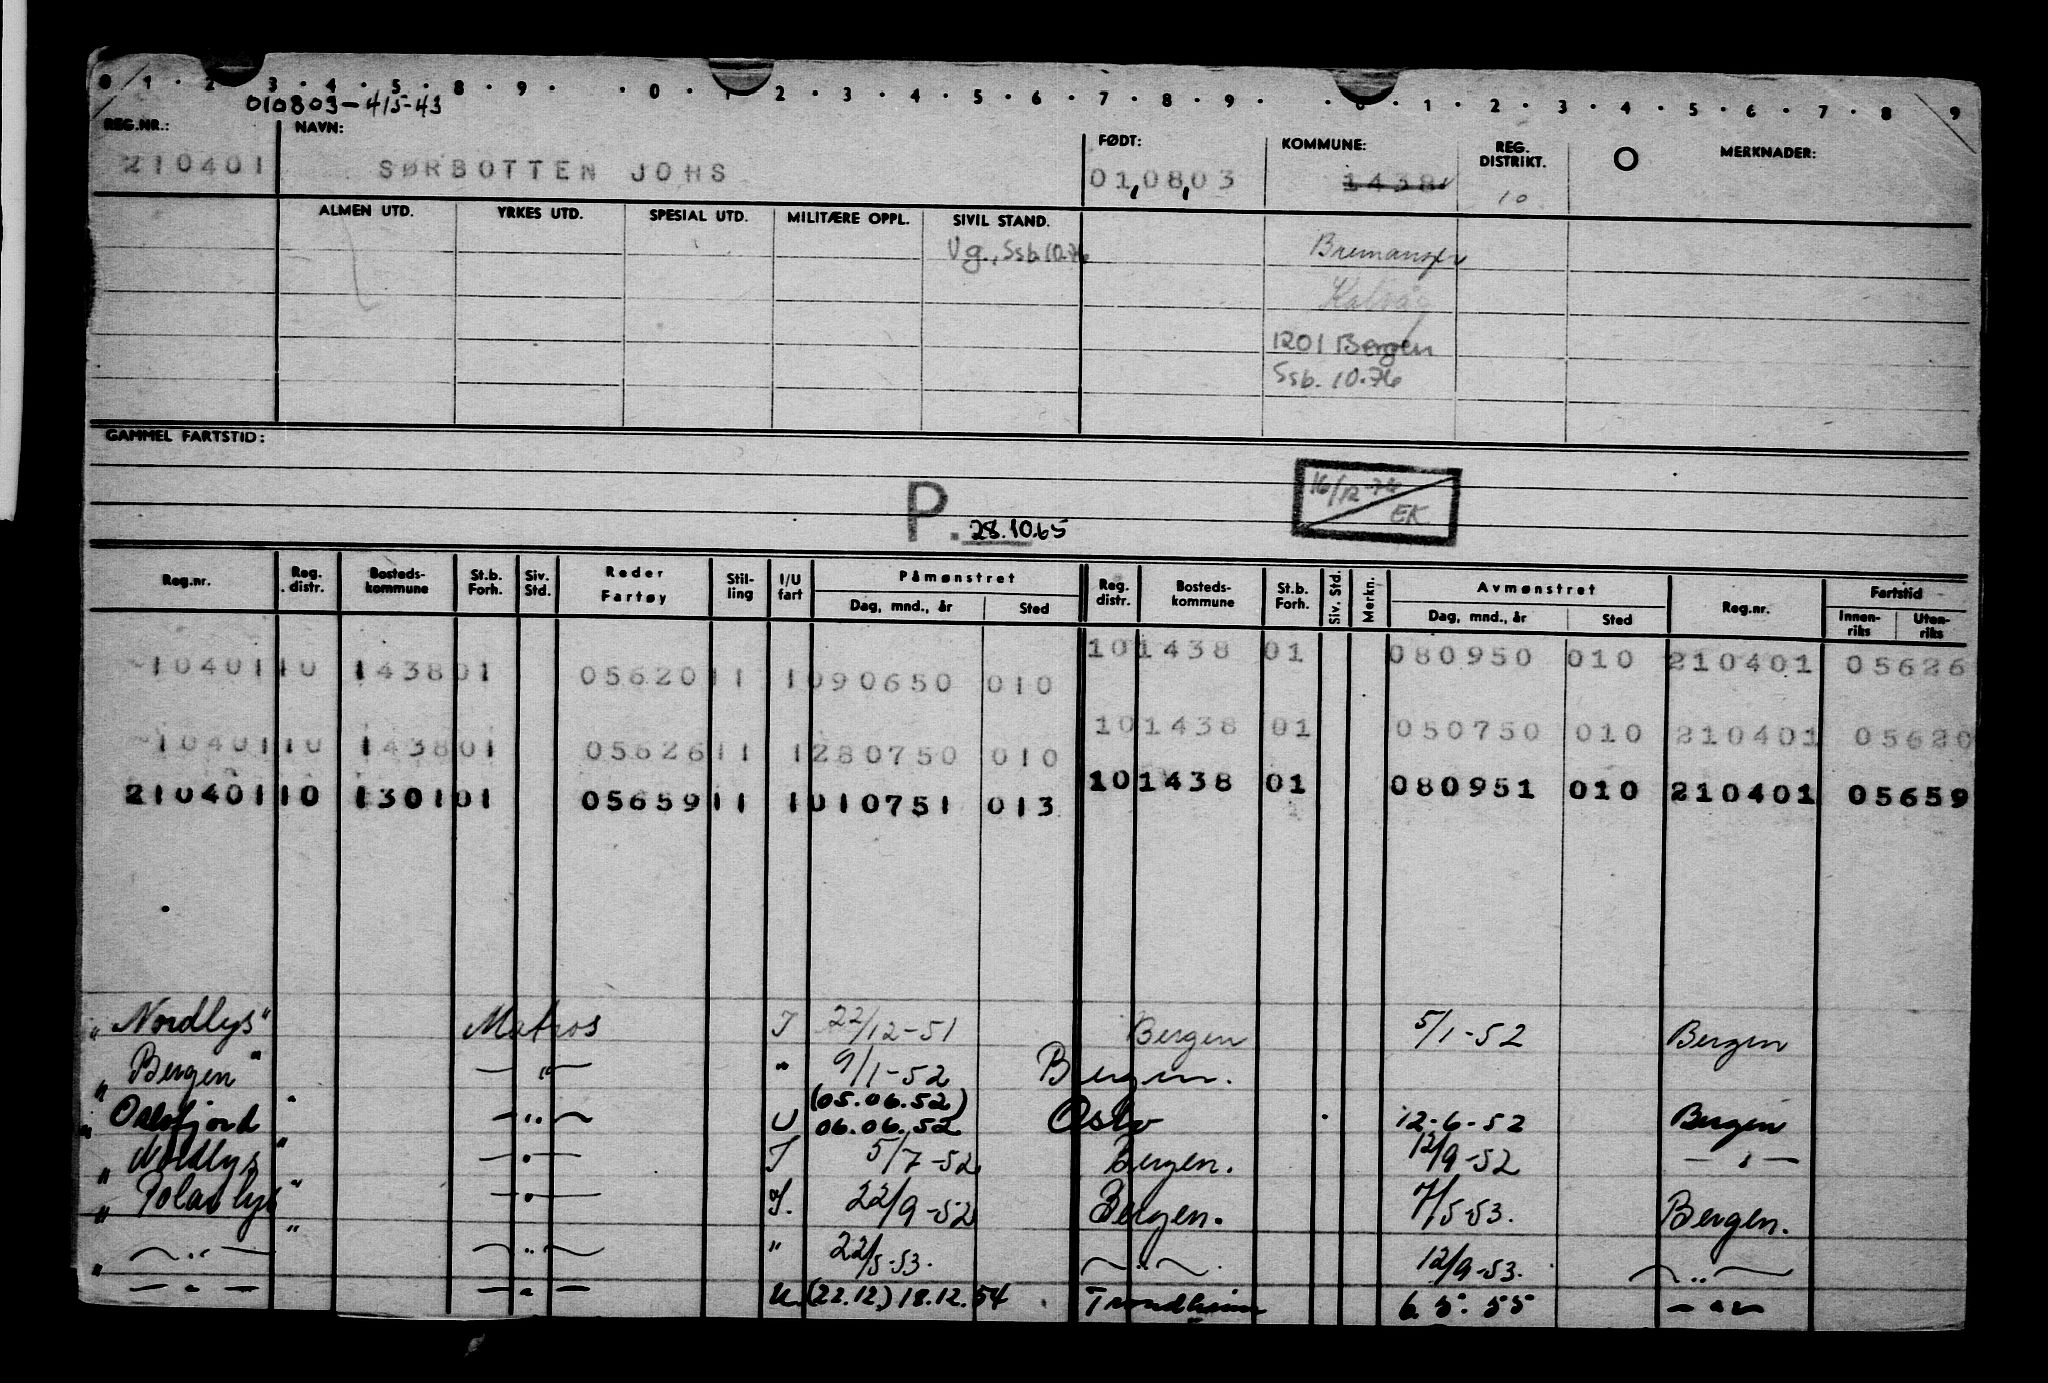 0 1 · 2 · 3 · 4 · 5 · 8 · 9 · · 0 · 1 2 · 3 · 4 · 5 · 6 · 7 · 8 · 9 · · 0 · 1 · 2 · 3 · 4 · 5 · 6 · 7 · 8 · 9
010803-415-43
REG.NR.: NAVN: FØDT: KOMMUNE: REG. DISTRIKT. O MERKNADER:
210401 SØRBOTTEN JOHS 01,08,03 1438 10
ALMEN UTD. YRKES UTD. SPESIAL UTD. MILITÆRE OPPL. SIVIL STAND.
Vg., Ssb. 10.76 Bremanger
Kalvåg
1201 Bergen
Ssb. 10.76
GAMMEL FARTSTID:
P. 28.10.65 16/12-76 EK
Reg.nr. Reg. distr. Bosteds-kommune St.b. Forh. Siv. Std. Reder Fartøy Stil-ling I/U fart Påmønstret Reg. distr. Bosteds-kommune St.b. Forh. Siv. Std. Merkn. Avmønstret Reg.nr. Fartstid
Dag, mnd., år Sted Dag, mnd., år Sted Innen-riks Uten-riks
101438 01 080950 010 210401 05626
1040110 143801 0562011 1090650 010
101438 01 050750 010 210401 05620
1040110 143801 0562611 1280750 010
101438 01 080951 010 210401 05659
21040110 130101 0565911 1010751 013
"Nordlys" Matros I 22/12-51 Bergen 5/1-52 Bergen
"Bergen" — " — " 9/1-52 Bergen.
(05.06.52)
"Oslofjord" — " — U 06.06.52 Oslo 12-6-52 Bergen
"Nordlys" — " — I 5/7-52 Bergen. 12/9-52 — " —
"Polarlys" — " — I. 22/9-52 Bergen. 7/5-53. Bergen.
" — " — " — " — " 22/5-53. — " — 12/9-53. — " —
— " — — " — U. (22.12.) 18.12.54 Trondheim 6.5.55 — " —